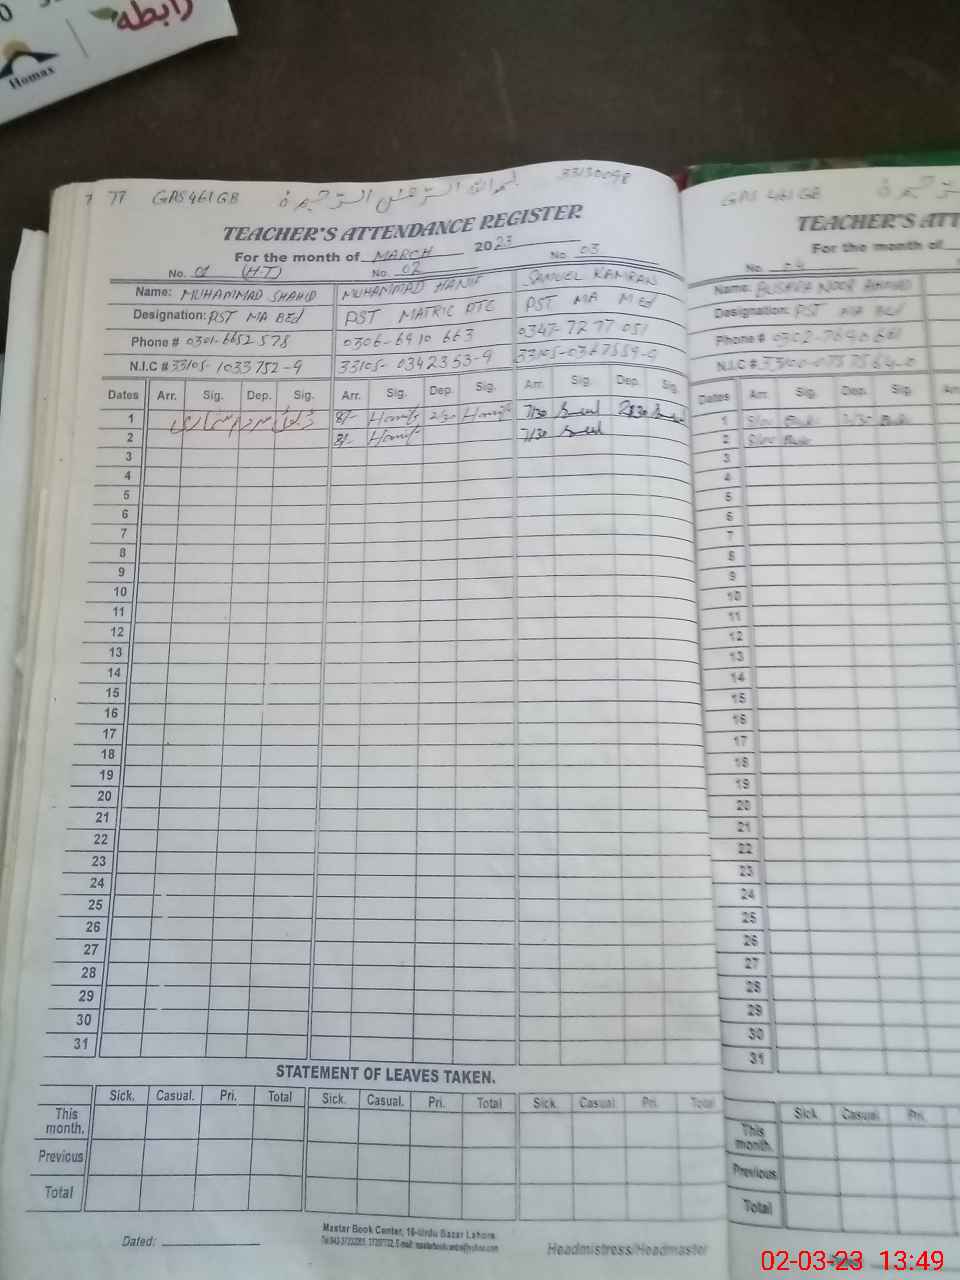 رابطہ
Homax
7 77 GPS 461 GB بسم اللہ الرحمن الرحیم 33130098
TEACHER'S ATTENDANCE REGISTER
For the month of MARCH 2023
No. 01 (H-T) No. 02 No. 03
Name: MUHAMMAD SHAHID MUHAMMAD HANIF SAMUEL KAMRAN
Designation: PST MA BEd PST MATRIC PTC PST MA MEd
Phone # 0301-6652578 0306-6910663 0347-7277051
N.I.C # 33105-1033752-9 33105-0342353-9 33105-0367559-9
Dates Arr. Sig. Dep. Sig. Arr. Sig. Dep. Sig. Arr. Sig. Dep. Sig.
1 8/- Hanif 2/30 Hanif 7/30
2 8/- Hanif 7/30
3
4
5
6
7
8
9
10
11
12
13
14
15
16
17
18
19
20
21
22
23
24
25
26
27
28
29
30
31
STATEMENT OF LEAVES TAKEN.
Sick. Casual. Pri. Total Sick. Casual. Pri. Total Sick. Casual. Pri. Total
This month.
Previous
Total
Master Book Center, 16-Urdu Bazar Lahore.
Dated: Headmistress/Headmaster
GPS 461 GB
TEACHER'S ATT
For the month of
No. 04
Name: BUSHRA NOOR AHMAD
Designation: PST MA BEd
Phone #
N.I.C #
Dates Arr. Sig. Dep. Sig. Arr
1
2
3
4
5
6
7
8
9
10
11
12
13
14
15
16
17
18
19
20
21
22
23
24
25
26
27
28
29
30
31
Sick. Casual. Pri.
This month.
Previous
Total
02-03-23 13:49